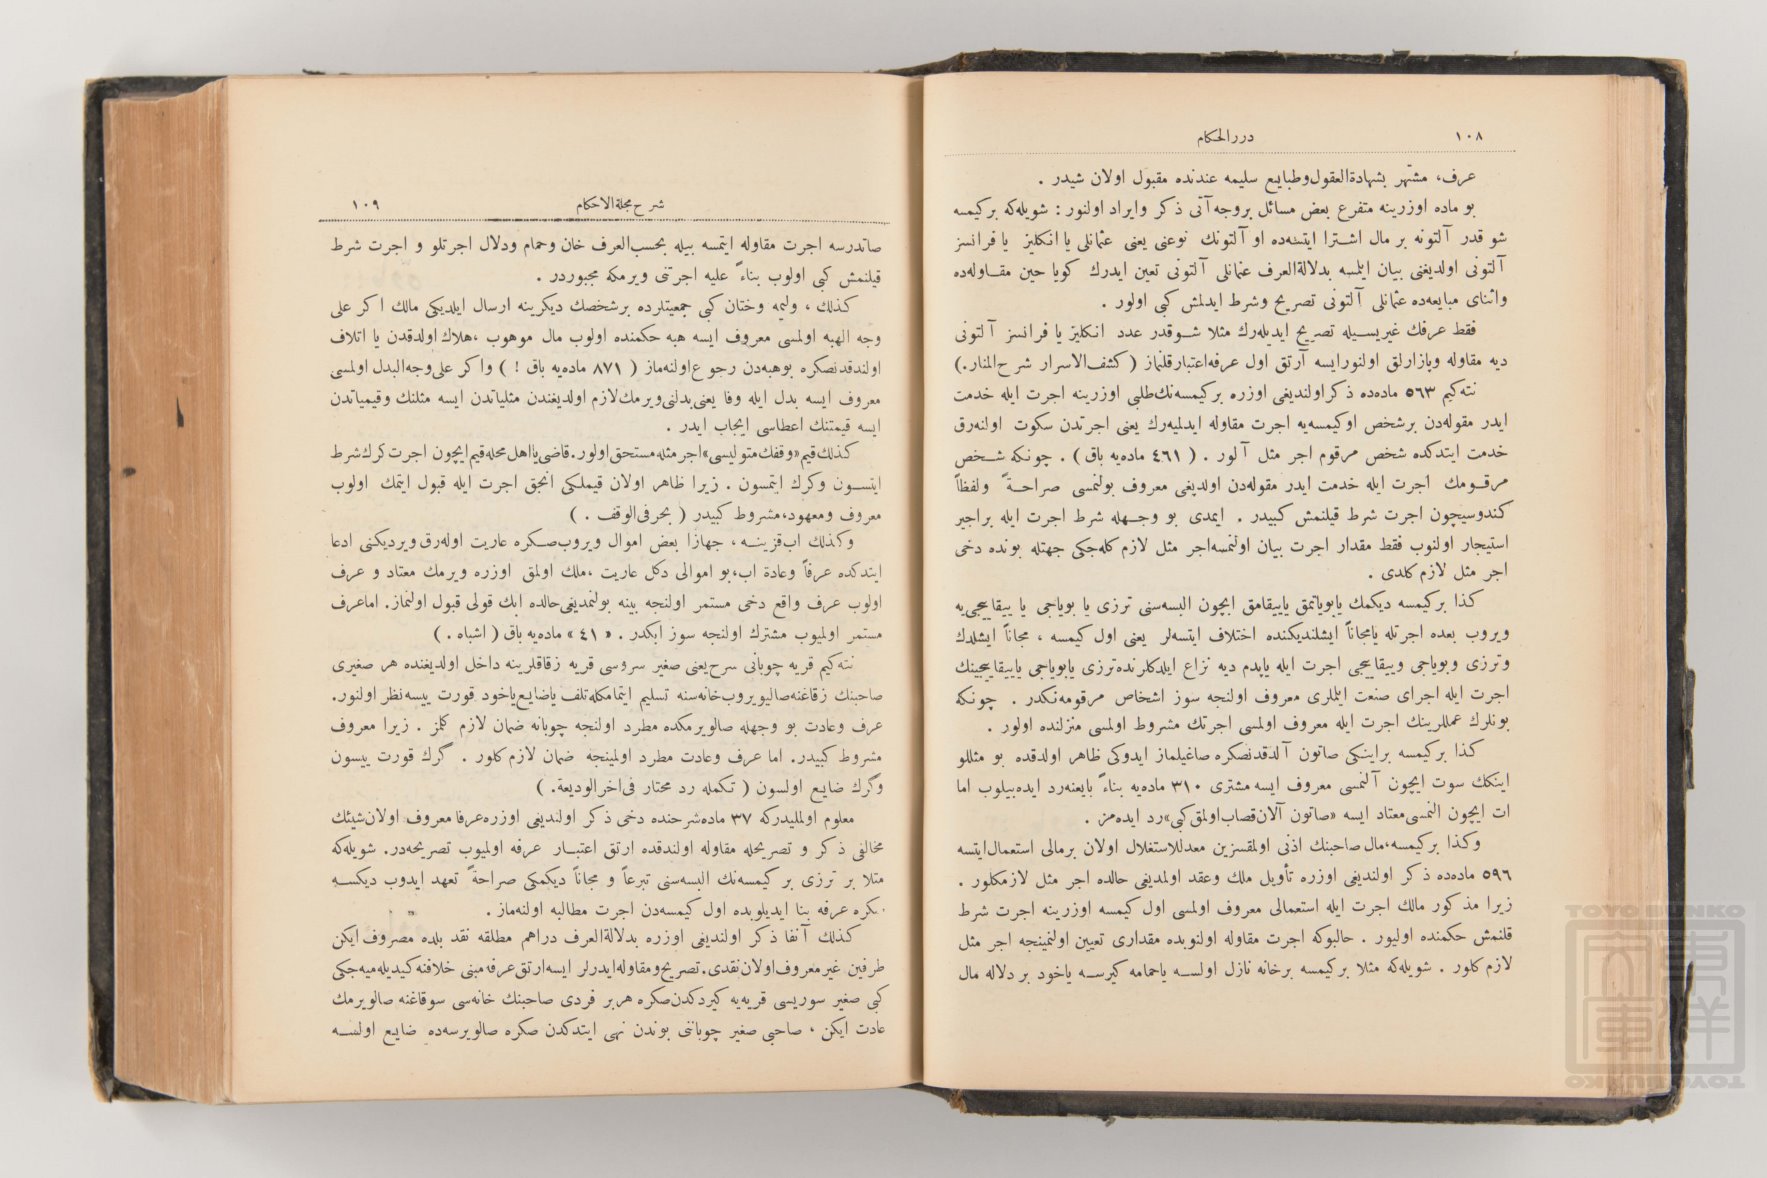 ١٠٨
دررالحكام
عرف، مشتهر بشهادةالعقول وطبايع سليمه عندنده مقبول اولان شيدر .
بو ماده اوزرينه متفرع بعض مسائل بروجه آتى ذكر وايراد اولنور : شويله كه بركيمسه
شو قدر آلتونه بر مال اشترا ايتسه ده او آلتونك نوعنى يعنى عثمانلى يا انكليز يا فرانسز
آلتونى اولديغنى بيان ايلمسه بدلالةالعرف عثمانلى آلتونى تعين ايدرك كويا حين مقاوله ده
واثناى مبايعه ده عثمانلى آلتونى تصريح وشرط ايدلمش كبى اولور .
فقط عرفك غيريسيله تصريح ايديله رك مثلا شوقدر عدد انكليز يا فرانسز آلتونى
ديه مقاوله وپازارلق اولنورايسه آرتق اول عرفه اعتبار قلنماز ( كشف الاسرار شرح المنار.)
نته كيم ٥٦٣ ماده ده ذكر اولنديغى اوزره بركيمسه نك طلبى اوزرينه اجرت ايله خدمت
ايدر مقوله دن برشخص اوكيمسه يه اجرت مقاوله ايدلميه رك يعنى اجرتدن سكوت اولنه رق
خدمت ايتدكده شخص مرقوم اجر مثل آلور . ( ٤٦١ ماده يه باق ) . چونكه شخص
مرقومك اجرت ايله خدمت ايدر مقوله دن اولديغى معروف بولنمسى صراحةً ولفظاً
كندوسيچون اجرت شرط قيلنمش كبيدر . ايمدى بو وجهله شرط اجرت ايله براجير
استيجار اولنوب فقط مقدار اجرت بيان اولنمسه اجر مثل لازم كله جكى جهتله بونده دخى
اجر مثل لازم كلدى .
كذا بركيمسه ديكمك يابوياتمق ياييقامق ايچون البسه سنى ترزى يا بوياجى يا ييقاييجى يه
ويروب بعده اجرتله يامجاناً ايشلنديكنده اختلاف ايتسه لر يعنى اول كيمسه ، مجاناً ايشلدك
وترزى وبوياجى وييقاييجى اجرت ايله ياپدم ديه نزاع ايلدكلرنده ترزى يابوياجى ياييقاييجينك
اجرت ايله اجراى صنعت ايلملرى معروف اولنجه سوز اشخاص مرقومه نكدر . چونكه
بونلرك عمللرينك اجرت ايله معروف اولمسى اجرتك مشروط اولمسى منزلنده اولور .
كذا بركيمسه براينكى صاتون آلدقدنصكره صاغيلماز ايدوكى ظاهر اولدقده بو مثللو
اينكك سوت ايچون آلنمسى معروف ايسه مشترى ٣١٠ ماده يه بناءً بايعنه رد ايده بيلوب اما
ات ايچون النمسى معتاد ايسه «صاتون آلان قصاب اولمق كبى» رد ايده مز .
وكذا بركيمسه، مال صاحبنك اذنى اولمقسزين معدللاستغلال اولان برمالى استعمال ايتسه
٥٩٦ ماده ده ذكر اولنديغى اوزره تأويل ملك وعقد اولمديغى حالده اجر مثل لازمكلور .
زيرا مذكور مالك اجرت ايله استعمالى معروف اولمسى اول كيمسه اوزرينه اجرت شرط
قلنمش حكمنده اوليور . حالبوكه اجرت مقاوله اولنوبده مقدارى تعيين اولنمينجه اجر مثل
لازم كلور . شويله كه مثلا بركيمسه برخانه نازل اولسه ياحمامه كيرسه ياخود بر دلاله مال
شرح مجلةالاحكام
١٠٩
صاتدرسه اجرت مقاوله ايتمسه بيله بحسب العرف خان وحمام ودلال اجرتلو و اجرت شرط
قيلنمش كبى اولوب بناءً عليه اجرتنى ويرمكه مجبوردر .
كذلك ، وليمه وختان كبى جمعيتلرده برشخصك ديكرينه ارسال ايلديكى مالك اكر على
وجه الهبه اولمسى معروف ايسه هبه حكمنده اولوب مال موهوب ،هلاك اولدقدن يا اتلاف
اولندقدنصكره بوهبه دن رجوع اولنه ماز ( ٨٧١ ماده يه باق ! ) واكر على وجه البدل اولمسى
معروف ايسه بدل ايله وفا يعنى بدلنى ويرمك لازم اولديغندن مثلياتدن ايسه مثلنك وقيمياتدن
ايسه قيمتنك اعطاسى ايجاب ايدر .
كذلك قيم «وقفك متوليسى» اجر مثله مستحق اولور. قاضى يا اهل محله قيم ايچون اجرت كرك شرط
ايتسون وكرك ايتمسون . زيرا ظاهر اولان قيملكى انجق اجرت ايله قبول ايتمك اولوب
معروف ومعهود، مشروط كبيدر ( بحر فى الوقف . )
وكذلك اب قزينه ، جهازا بعض اموال ويروب صكره عاريت اوله رق ويرديكنى ادعا
ايتدكده عرفاً وعادة اب، بو اموالى دكل عاريت ،ملك اولمق اوزره ويرمك معتاد و عرف
اولوب عرف واقع دخى مستمر اولنجه بينه بولنمديغى حالده ابك قولى قبول اولنماز. اماعرف
مستمر اولميوب مشترك اولنجه سوز ابكدر . « ٤١ » ماده يه باق ( اشباه . )
نته كيم قريه چوبانى سرح يعنى صغير سروسى قريه زقاقلرينه داخل اولديغنده هر صغيرى
صاحبنك زقاغنه صاليويروب خانه سنه تسليم ايتمامكله تلف ياضايع ياخود قورت ييسه نظر اولنور.
عرف وعادت بو وجهله صالويرمكده مطرد اولنجه چوبانه ضمان لازم كلمز . زيرا معروف
مشروط كبيدر. اما عرف وعادت مطرد اولمينجه ضمان لازم كلور . گرك قورت ييسون
وگرك ضايع اولسون ( تكمله رد محتار فى اخر الوديعة. )
معلوم اولمليدركه ٣٧ ماده شرحنده دخى ذكر اولنديغى اوزره عرفا معروف اولان شيئك
مخالفى ذكر و تصريحله مقاوله اولندقده ارتق اعتبار عرفه اولميوب تصريحه در. شويله كه
مثلا بر ترزى بر كيمسه نك البسه سنى تبرعاً و مجاناً ديكمكى صراحةً تعهد ايدوب ديكسه
صكره عرفه بنا ايديلوبده اول كيمسه دن اجرت مطالبه اولنه ماز .
كذلك آنفا ذكر اولنديغى اوزره بدلالةالعرف دراهم مطلقه نقد بلده مصروف ايكن
طرفين غير معروف اولان نقدى. تصريح ومقاوله ايدرلر ايسه ارتق عرفه مبنى خلافنه كيديله ميه جكى
كبى صغير سوريسى قريه يه كيردكدن صكره هربر فردى صاحبنك خانه سى سوقاغنه صالويرمك
عادت ايكن ، صاحبى صغير چوباننى بوندن نهى ايتدكدن صكره صالويرسه ده ضايع اولسه
TOYO BUNKO
東洋文庫
TOYO BUNKO